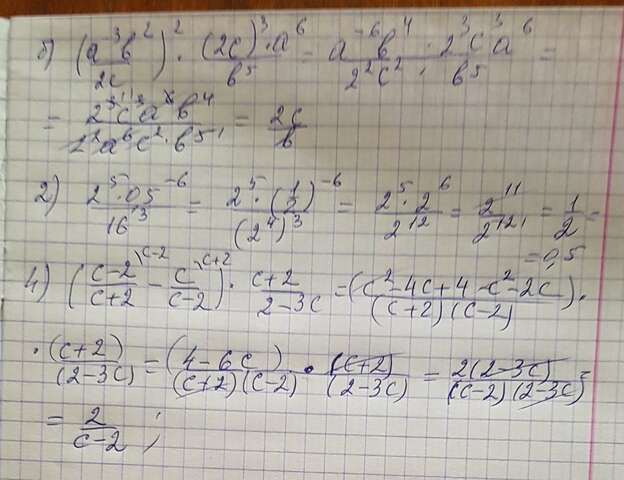 б) (a⁻³b²/2c)² · (2c)³·a⁶/b⁵ = a⁻⁶b⁴/2²c² · 2³c³a⁶/b⁵ =
= 2³c³a⁶b⁴/2²a⁶c²·b⁵ = 2c/b
2) 2⁵·0,5⁻⁶/16³ = 2⁵·(1/2)⁻⁶/(2⁴)³ = 2⁵·2⁶/2¹² = 2¹¹/2¹² = 1/2 =
= 0,5
4) (c-2/c+2 \c-2 - c/c-2 \c+2) · c+2/2-3c = (c²-4c+4-c²-2c/(c+2)(c-2)) ·
· (c+2)/(2-3c) = (4-6c)/(c+2)(c-2) · (c+2)/(2-3c) = 2(2-3c)/(c-2)(2-3c) =
= 2/c-2 ;